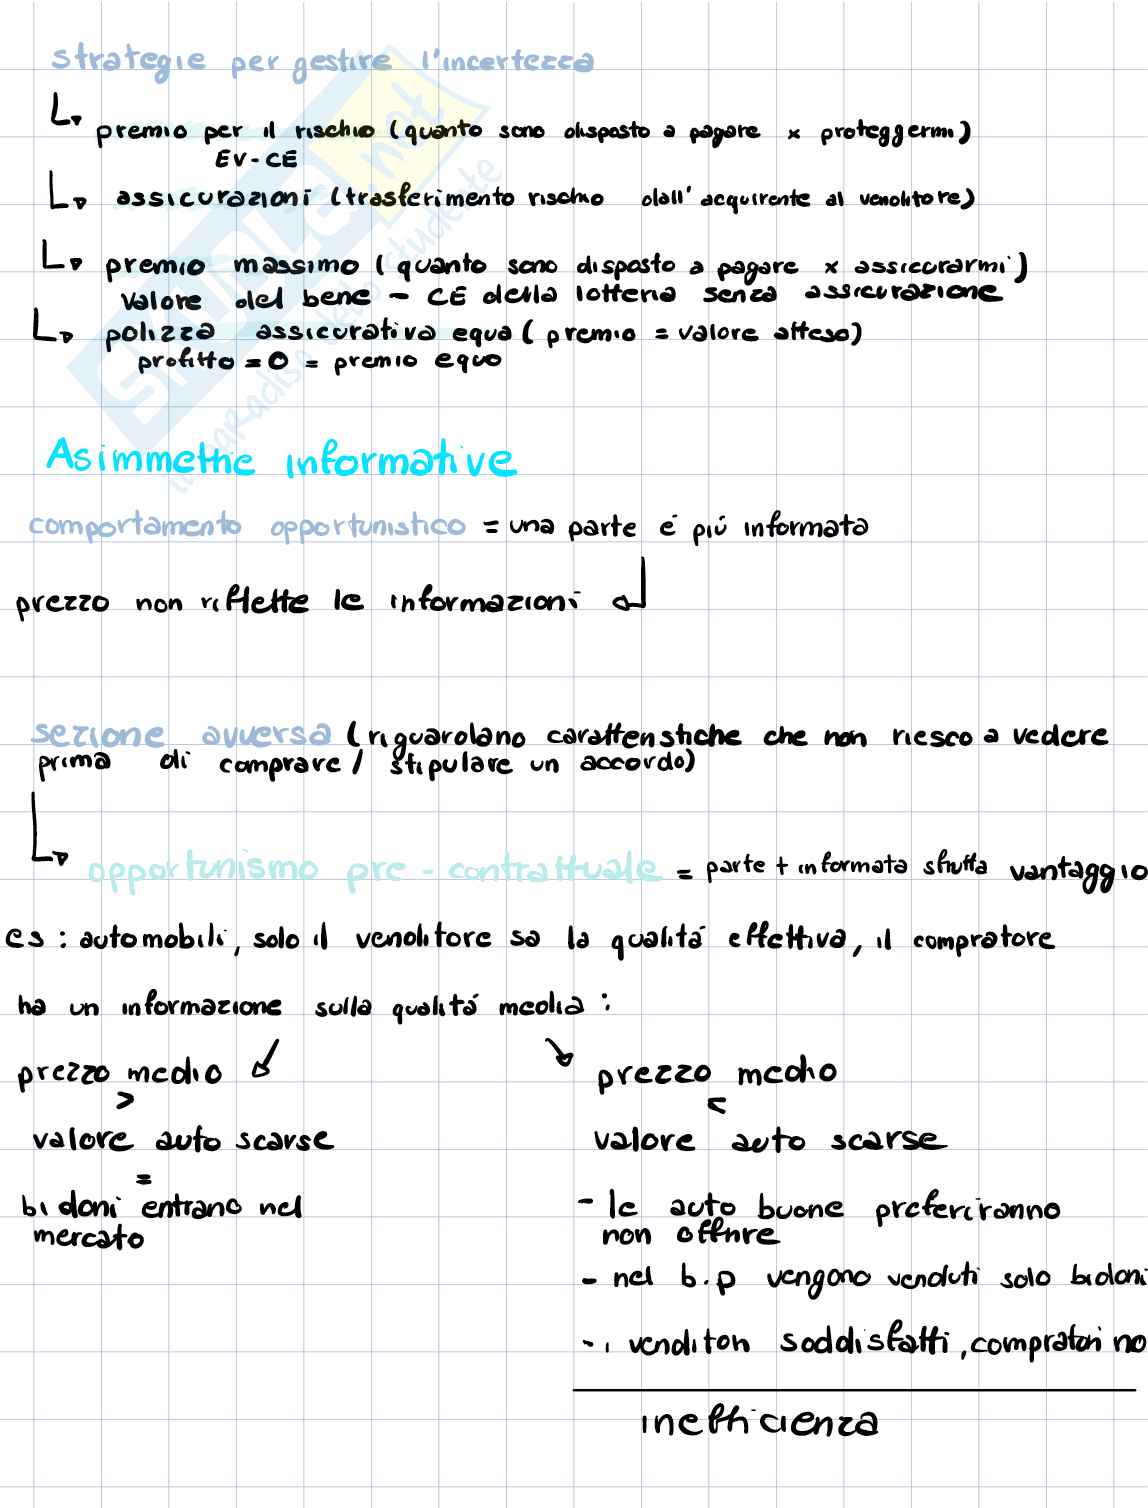 strategie per gestire l'incertezza
premio per il rischio (quanto sono disposto a pagare x proteggermi)
EV - CE
assicurazioni (trasferimento rischio dall' acquirente al venditore)
premio massimo (quanto sono disposto a pagare x assicurarmi)
valore del bene - CE della lotteria senza assicurazione
polizza assicurativa equa (premio = valore atteso)
profitto = 0 = premio equo
Asimmetrie informative
comportamento opportunistico = una parte é piú informata
prezzo non riflette le informazioni
sezione avversa (riguardano caratteristiche che non riesco a vedere
prima di comprare / stipulare un accordo)
opportunismo pre - contrattuale = parte + informata sfrutta vantaggio
es : automobili, solo il venditore sa la qualitá effettiva, il compratore
ha un informazione sulla qualitá media :
prezzo medio
>
valore auto scarse
=
bidoni entrano nel
mercato
prezzo medio
<
valore auto scarse
- le auto buone preferiranno
non offrire
- nel b.p vengono venduti solo bidoni
- i venditori soddisfatti, compratori no
inefficienza